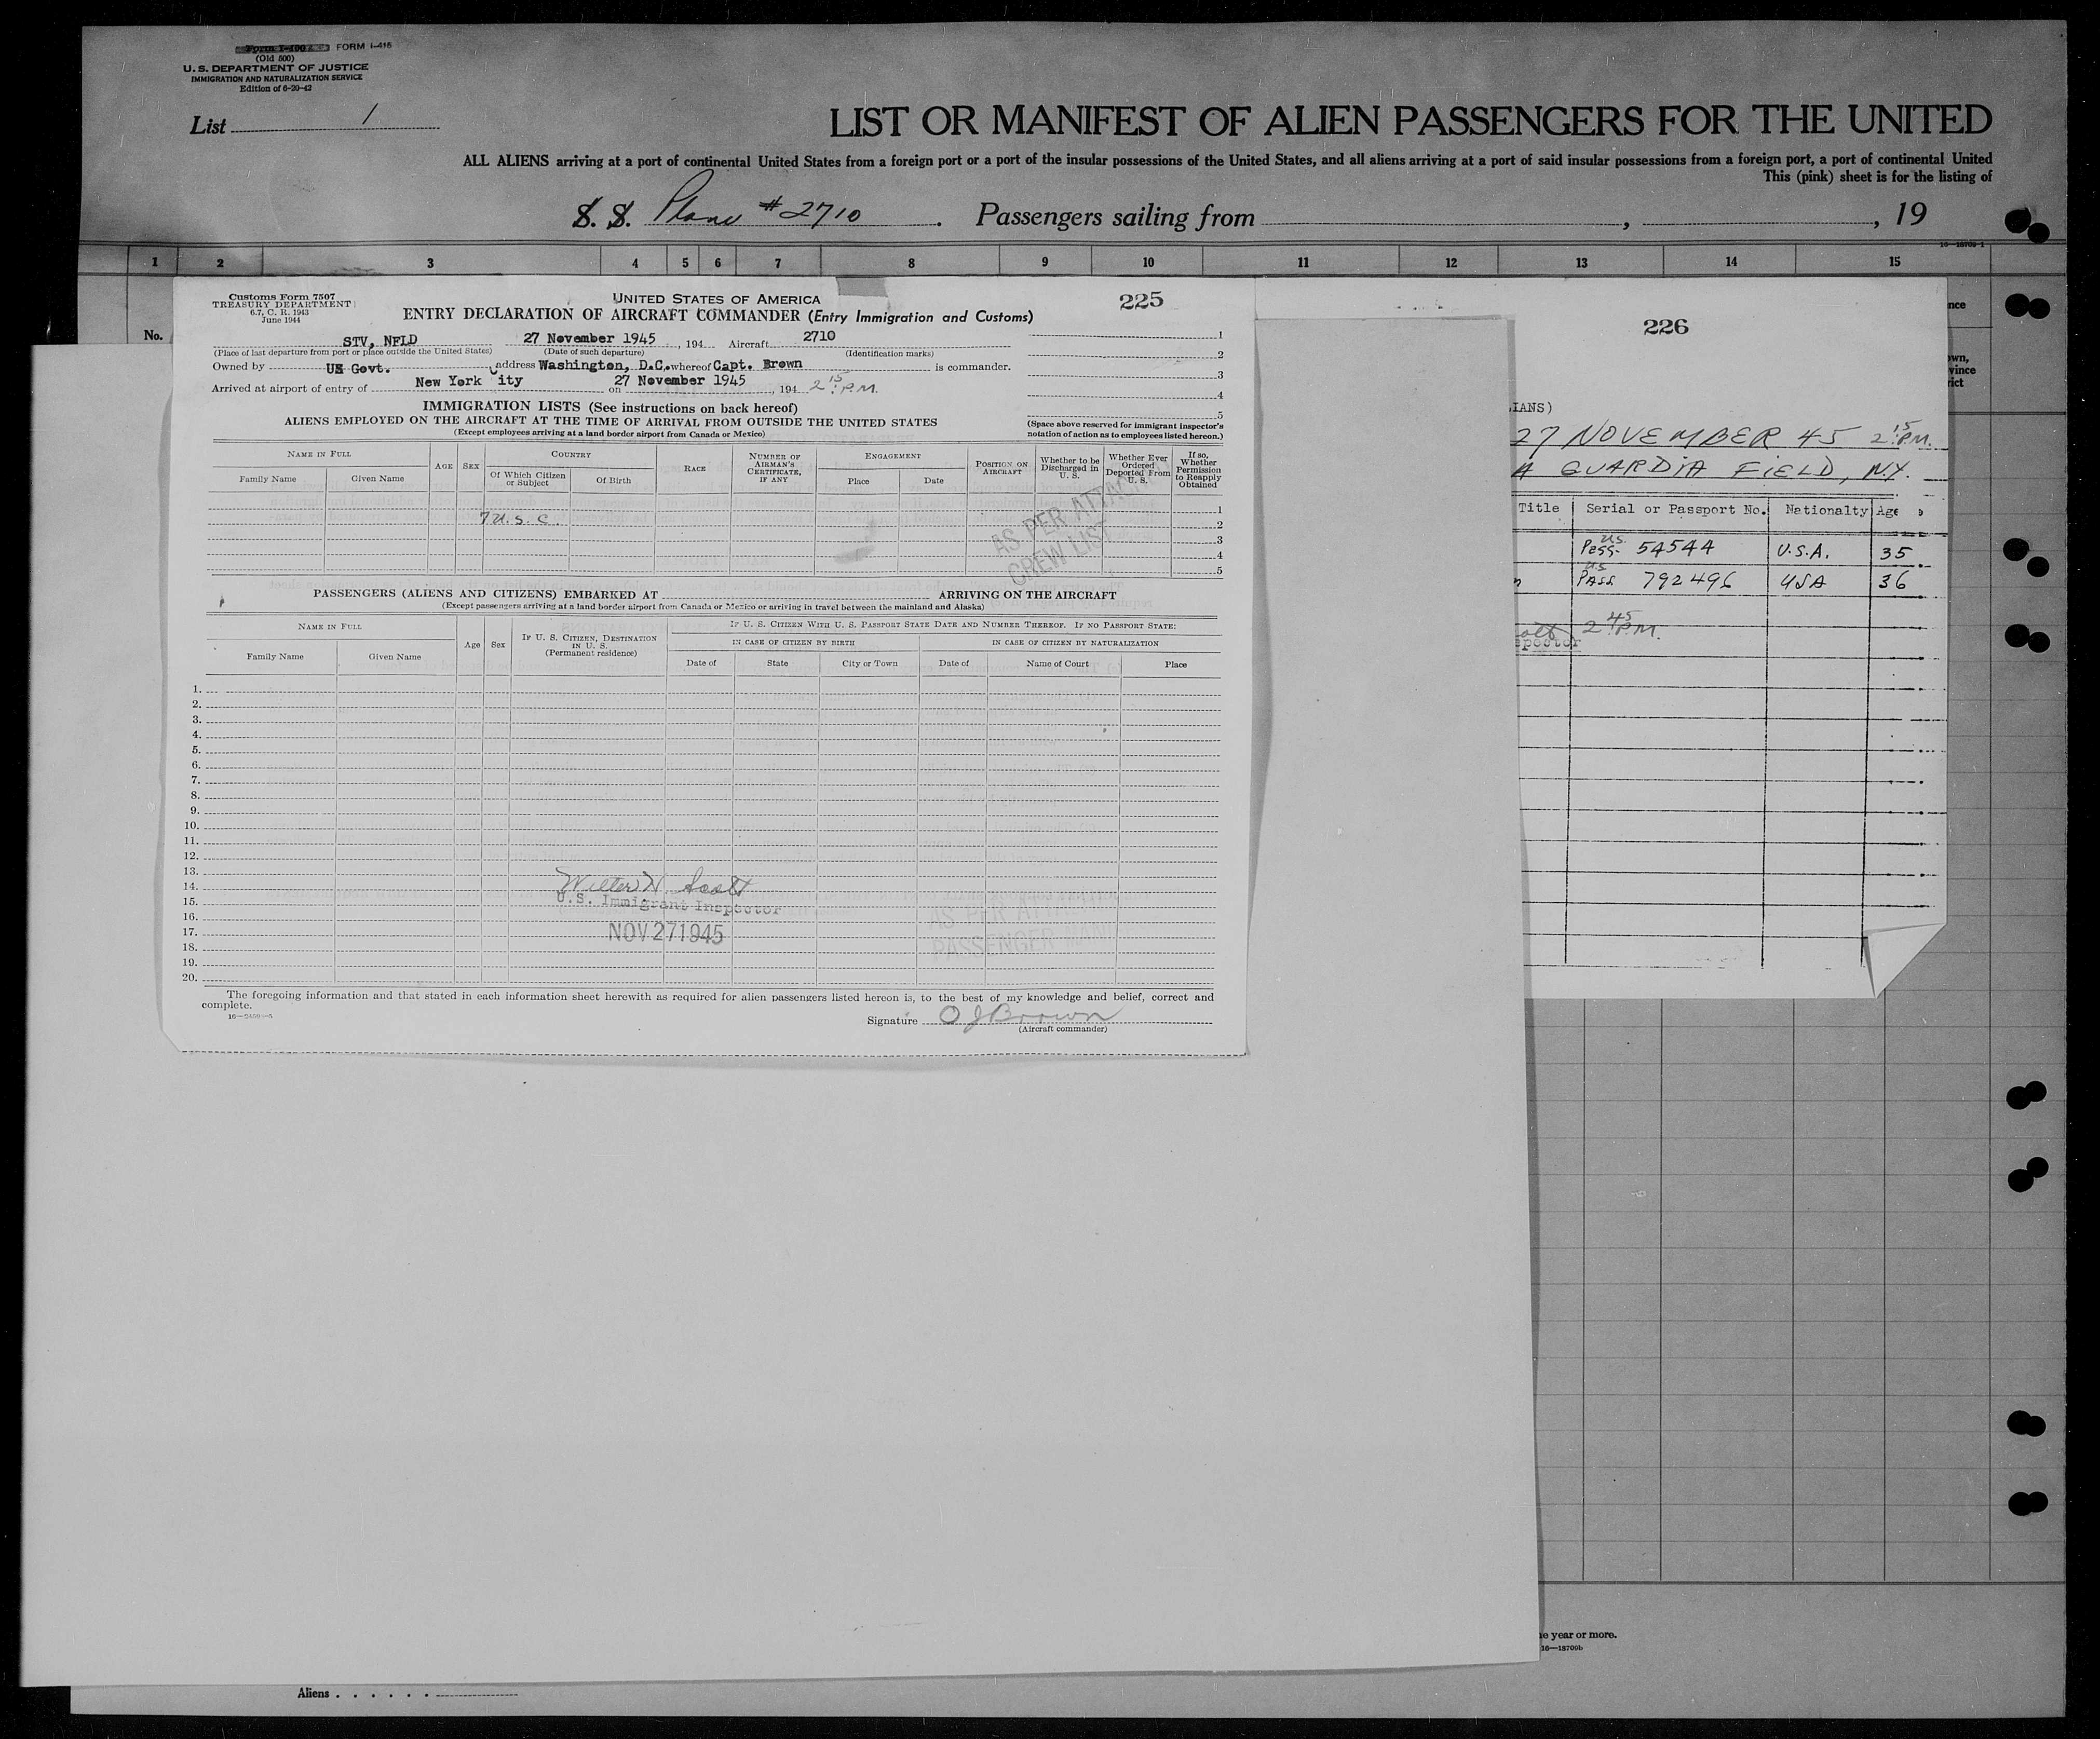 Form I-100 FORM I-415
(Old 500)
U. S. DEPARTMENT OF JUSTICE
IMMIGRATION AND NATURALIZATION SERVICE
Edition of 6-20-42
List 1
LIST OR MANIFEST OF ALIEN PASSENGERS FOR THE UNITED
ALL ALIENS arriving at a port of continental United States from a foreign port or a port of the insular possessions of the United States, and all aliens arriving at a port of said insular possessions from a foreign port, a port of continental United
This (pink) sheet is for the listing of
S. S. Plane #2710. Passengers sailing from , , 19
1 2 3 4 5 6 7 8 9 10 11 12 13 14 15
No.
Customs Form 7507
TREASURY DEPARTMENT
6.7, C. R. 1943
June 1944
UNITED STATES OF AMERICA
225
ENTRY DECLARATION OF AIRCRAFT COMMANDER (Entry Immigration and Customs)
STV, NFLD 27 November 1945, 194 Aircraft 2710
(Place of last departure from port or place outside the United States) (Date of such departure) (Identification marks)
Owned by US Govt. address Washington, D.C. whereof Capt. Brown is commander.
Arrived at airport of entry of New York ity on 27 November 1945, 194 2:15 P.M.
1
2
3
4
5
IMMIGRATION LISTS (See instructions on back hereof)
ALIENS EMPLOYED ON THE AIRCRAFT AT THE TIME OF ARRIVAL FROM OUTSIDE THE UNITED STATES
(Except employees arriving at a land border airport from Canada or Mexico)
(Space above reserved for immigrant inspector's notation of action as to employees listed hereon.)
NAME IN FULL AGE SEX COUNTRY RACE NUMBER OF AIRMAN'S CERTIFICATE, IF ANY ENGAGEMENT POSITION ON AIRCRAFT Whether to be Discharged in U. S. Whether Ever Ordered Deported From U. S. If so, Whether Permission to Reapply Obtained
Family Name Given Name Of Which Citizen or Subject Of Birth Place Date
7 U.S.C.
AS PER ATTACH
CREW LIST
1
2
3
4
5
PASSENGERS (ALIENS AND CITIZENS) EMBARKED AT ARRIVING ON THE AIRCRAFT
(Except passengers arriving at a land border airport from Canada or Mexico or arriving in travel between the mainland and Alaska)
NAME IN FULL Age Sex IF U. S. CITIZEN, DESTINATION IN U. S. (Permanent residence) IF U. S. CITIZEN WITH U. S. PASSPORT STATE DATE AND NUMBER THEREOF. IF NO PASSPORT STATE:
IN CASE OF CITIZEN BY BIRTH IN CASE OF CITIZEN BY NATURALIZATION
Family Name Given Name Date of State City or Town Date of Name of Court Place
1.
2.
3.
4.
5.
6.
7.
8.
9.
10.
11.
12.
13.
14.
15.
16.
17.
18.
19.
20.
Walter N. Scott
U.S. Immigrant Inspector
NOV 27 1945
AS PER ATTACH
PASSENGER MANI
The foregoing information and that stated in each information sheet herewith as required for alien passengers listed hereon is, to the best of my knowledge and belief, correct and
complete.
Signature O J Brown
(Aircraft commander)
226
IANS)
27 NOVEMBER 45 2:15 P.M.
A GUARDIA FIELD, N.Y.
Title Serial or Passport No. Nationalty Age
US Pass. 54544 U.S.A. 35
US PASS 792496 USA 36
2:45 P.M.
spector
nce
own,
vince
rict
e year or more.
16—18709b
Aliens . . . . . .